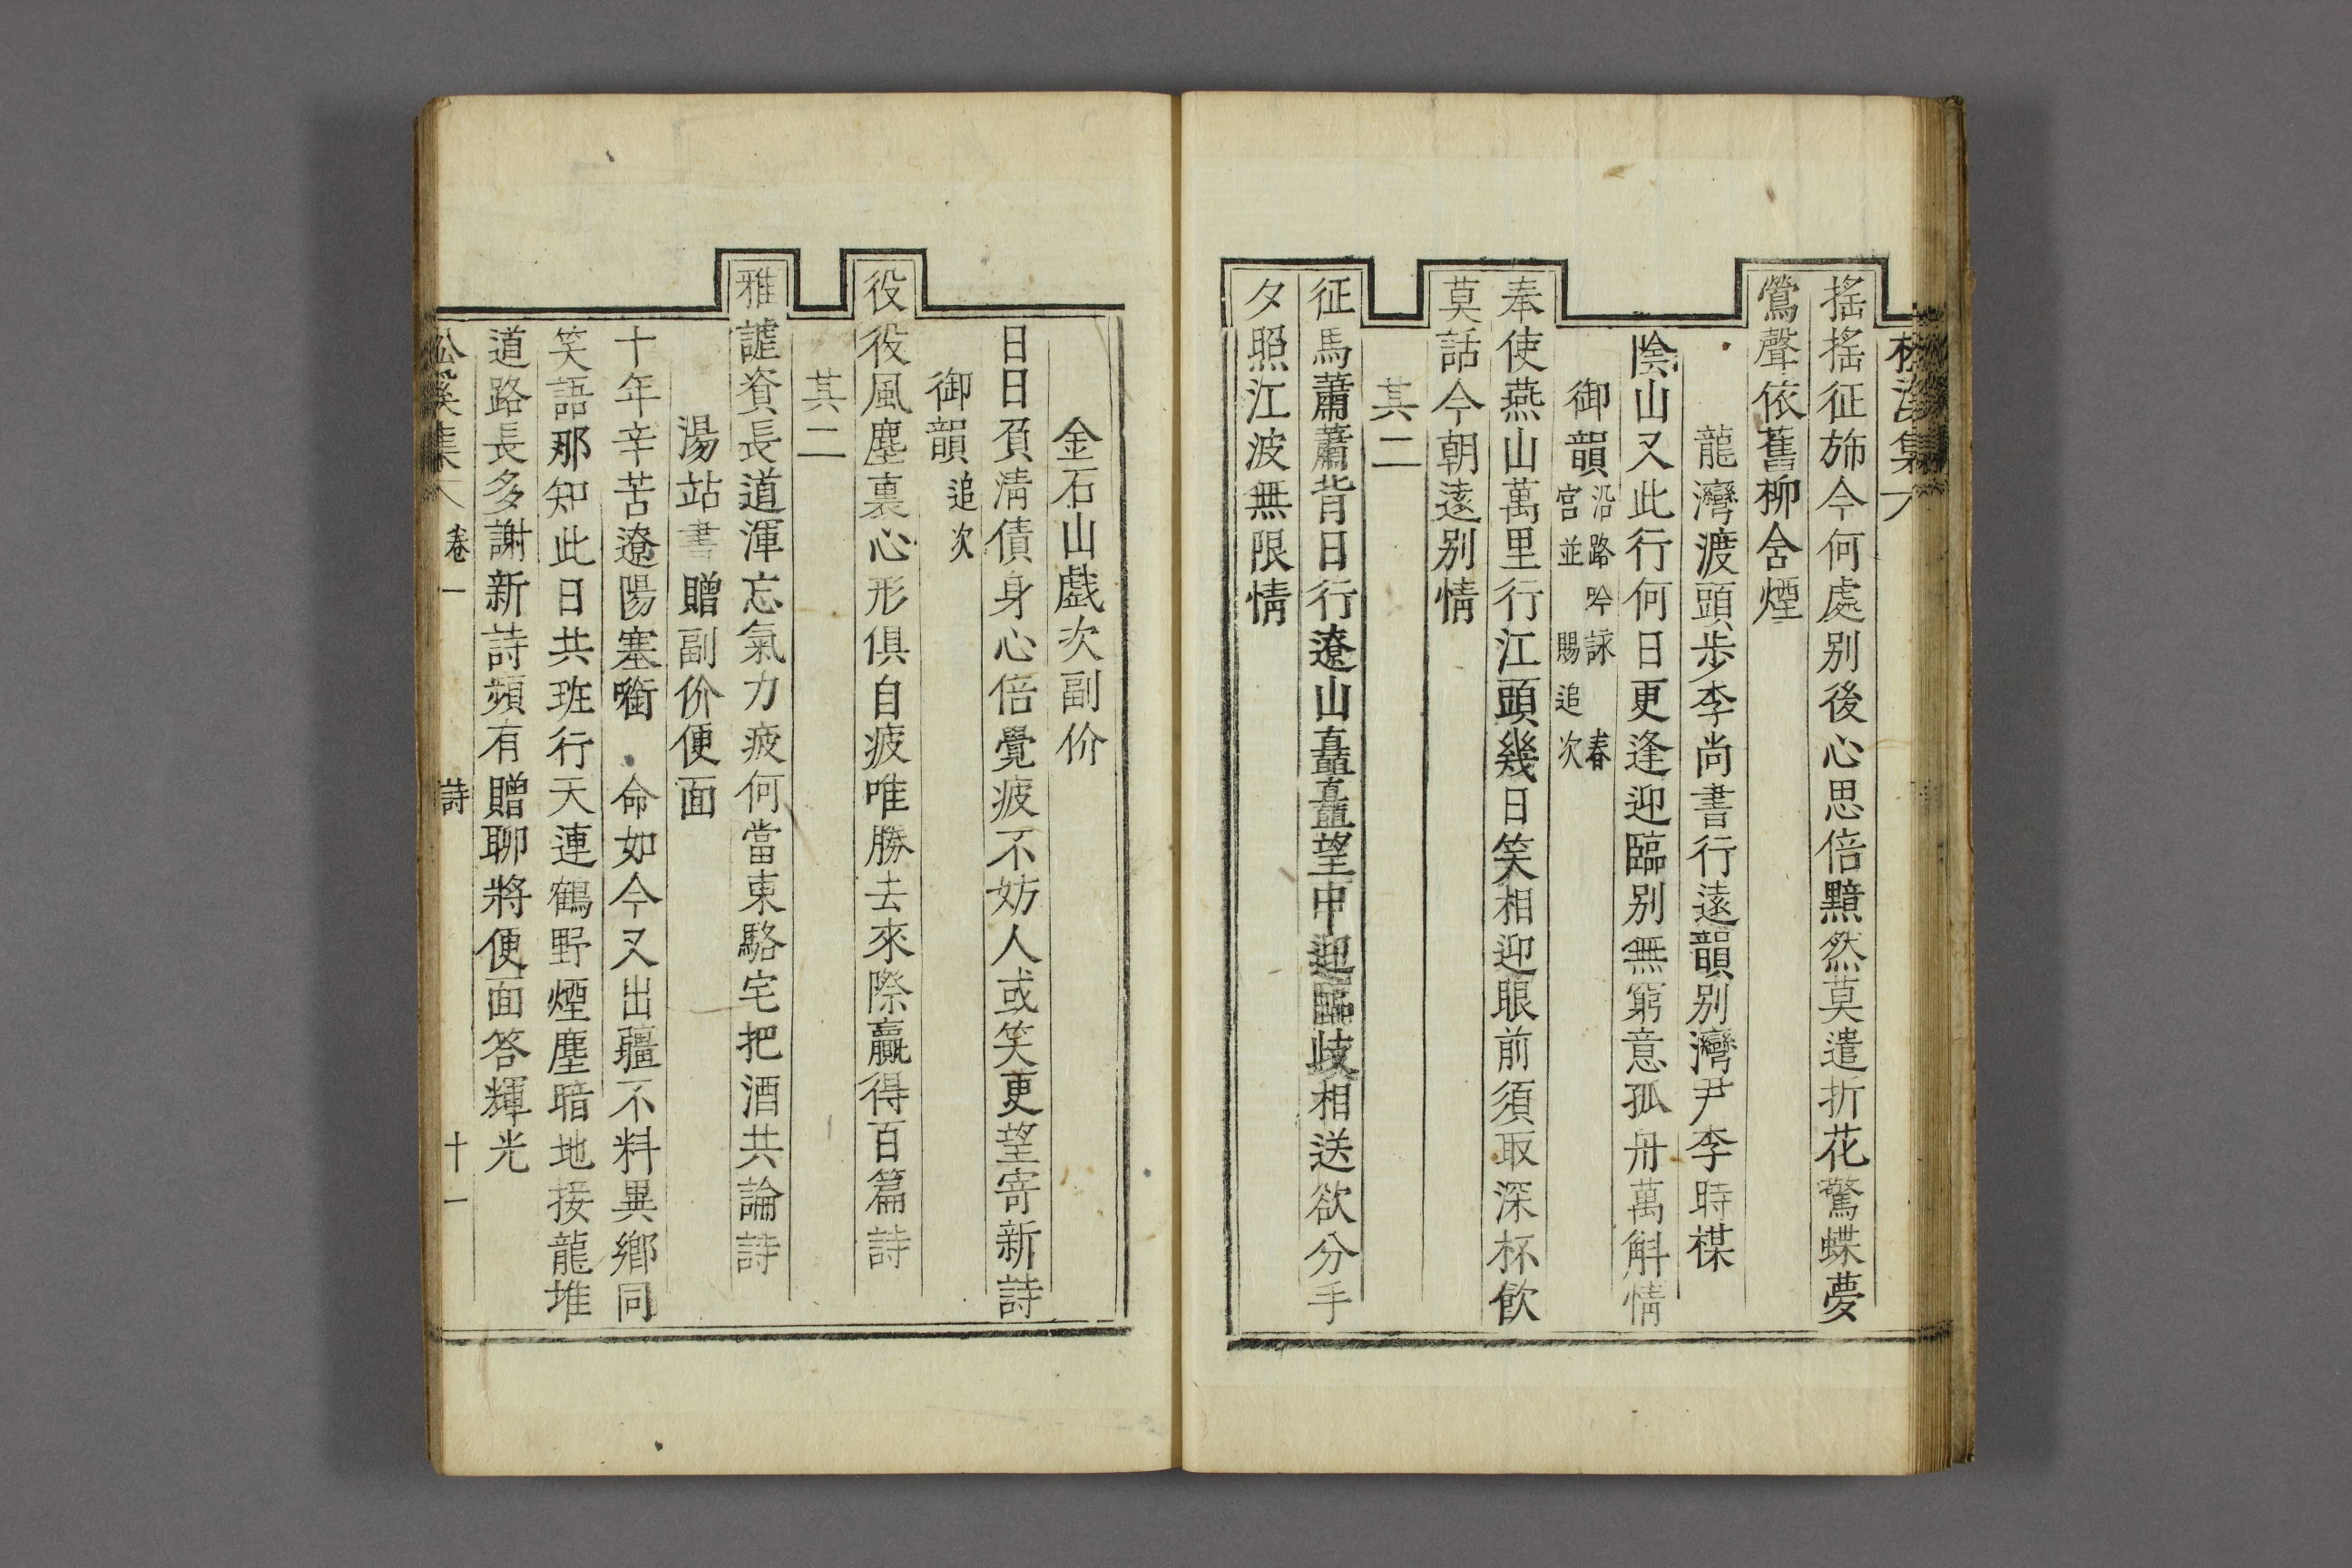 搖搖征斾今何處別後心思倍黯然莫遣折花驚蝶夢
鶯聲依舊柳含煙
龍灣渡頭步李尚書行遠韻別灣尹李時楳
陰山又此行何日更逢迎臨別無窮意孤舟萬斛情
御韻
沿路吟詠 春
宮並 賜追次
奉使燕山萬里行江頭幾日笑相迎眼前須取深杯飮
莫話今朝遠別情
其二
征馬蕭蕭背日行遼山矗矗望中迎臨歧相送欲分手
夕照江波無限情
金石山戲次副价
日日負淸債身心倍覺疲不妨人或笑更望寄新詩
御韻追次
役役風塵裏心形俱自疲唯勝去來際贏得百篇詩
其二
雅謔資長道渾忘氣力疲何當東駱宅把酒共論詩
湯站書贈副价便面
十年辛苦遼陽塞啣 命如今又出疆不料異鄕同
笑語那知此日共班行天連鶴野煙塵暗地接龍堆
道路長多謝新詩頻有贈聊將便面答輝光
松溪集 卷一 詩 十一